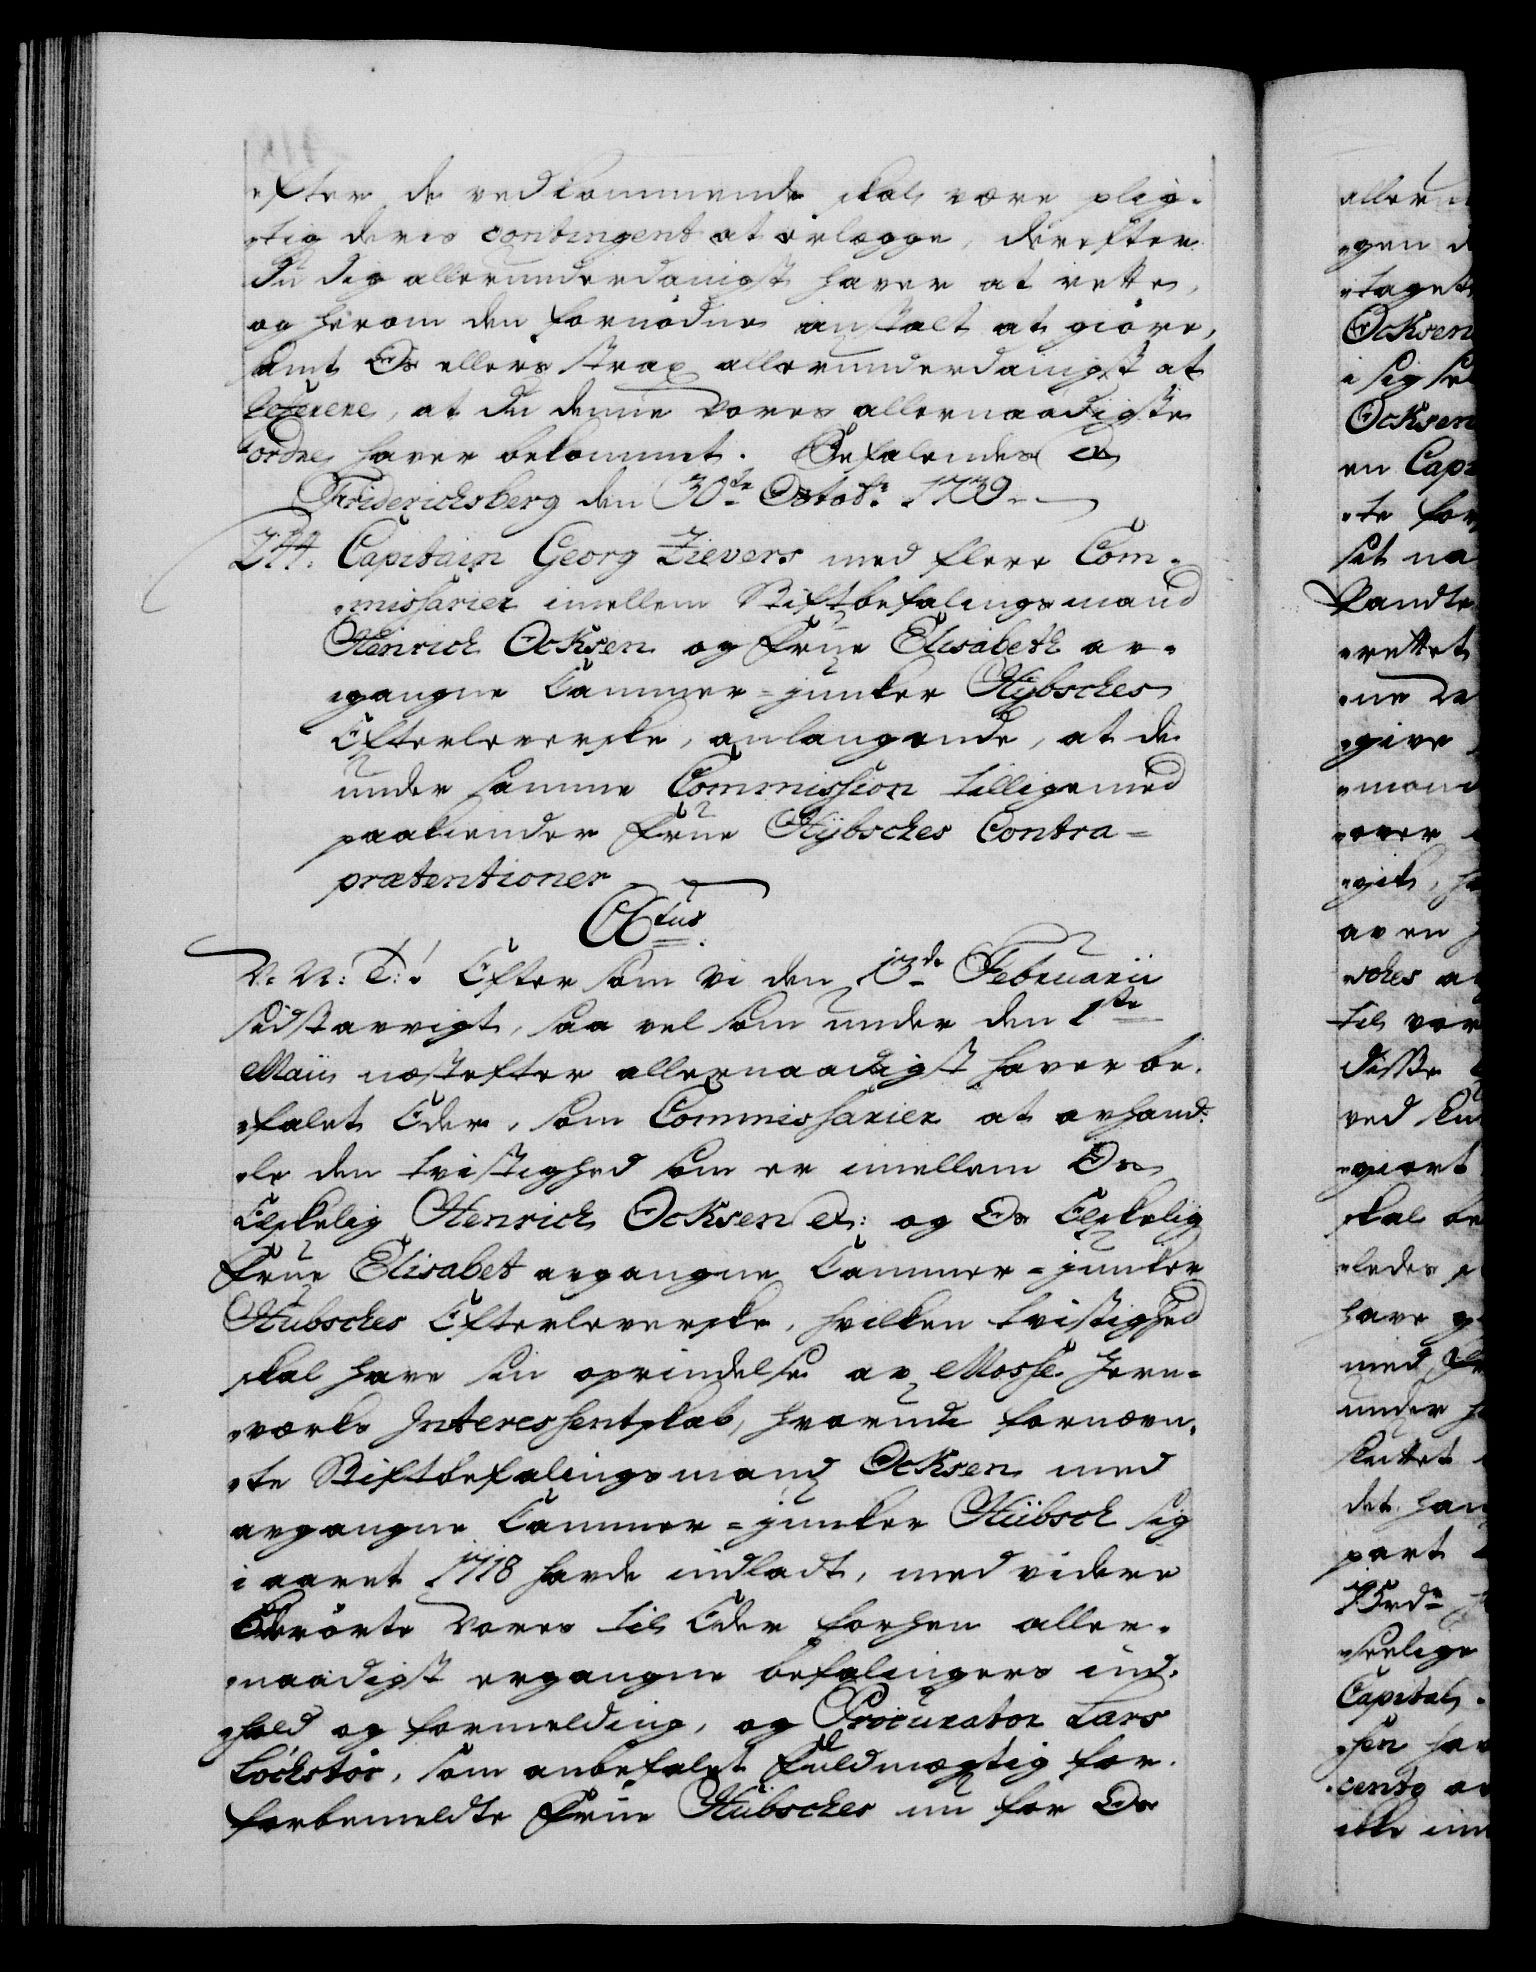 efter de vedkommende skal være plig-
-tig deris contingent at erlægge, derefter
du dig allerunderdanigst haver at rette,
og herom den fornødne anstalt at giøre,
samt Os ellers strax allerunderdanigst at
referere, at du denne Vores allernaadigste
ordre haver bekommet. Befalendes &
Friderichsberg den 30te Octobr 1739
244. Capitain Georg Zievers med flere Com-
-missarier imellem Stiftbefalingsmand
Henrich Ocksen og Frue Elisabeth av-
-gangne Cammer-junker Hÿbsches
Efterleverske, anlangende, at de
under samme Commission tilligemed
paakiender Frue Hÿbsches Contra-
prætentioner
Actus
V: A: T:! Efter som vi den 13de Februarii
sidstavvigt, saa vel som under den 1ste
Maii næstefter allernaadigst haver be-
-falet Eder, som Commissarier at avhand-
-le den tvistighed som er imellem Os
Elskelig Henrich Ocksen &: og Os Elskelig
Frue Elisabet avgangne Cammer-junker
Hübsches Efterleverske, hvilken tvistighed
skal have sin oprindelse av Mosse Jern-
-værks Interessentskab, hvorudi fornævn-
-te Stiftbefalingsmand Ocksen med
avgangne Cammer-junker Hübsch sig
i aaret 1718 havde indladt, med videre
berørte Vores til Eder forhen aller-
-naadigst ergangne befalingers ind-
-hold og formelding, og Procurator Lars
Lochstør, som anbefalet fuldmægtig for
forbemeldte Frue Hübsches nu for Os
-gen
-taget
Ocksen
i sig sel
Ocksen
en Cap
-te for
Pandte
-rettet
-give
-mand
-over
av en
-sches
til vor
disse
ved
-giort
skal be
-ledes
have
med
under
det han
part
-seelige
Capital
-cento
ikke